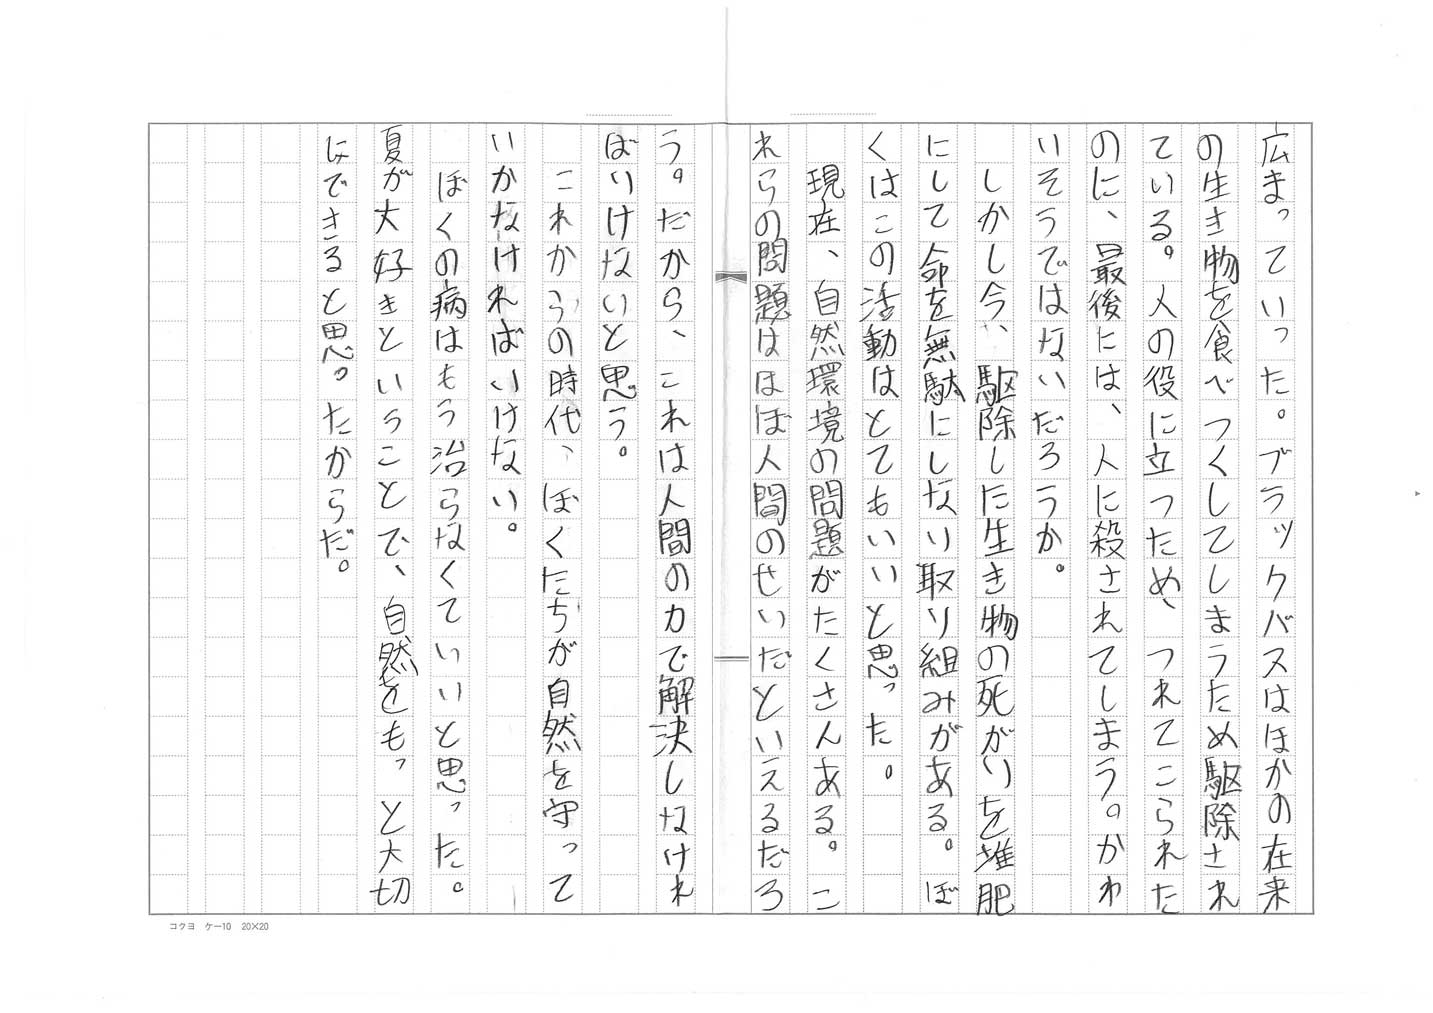 広まっていった。ブラックバスはほかの在来
の生き物を食べつくしてしまうため駆除され
ている。人の役に立つため、つれてこられた
のに、最後には、人に殺されてしまう。かわ
いそうではないだろうか。
しかし今、駆除した生き物の死がいを堆肥
にして命を無駄にしない取り組みがある。ぼ
くはこの活動はとてもいいと思った。
現在、自然環境の問題がたくさんある。こ
れらの問題はほぼ人間のせいだといえるだろ
う。だから、これは人間の力で解決しなけれ
ばいけないと思う。
これからの時代、ぼくたちが自然を守って
いかなければいけない。
ぼくの病はもう治らなくていいと思った。
夏が大好きということで、自然をもっと大切
にできると思っ。たからだ。
コクヨ ケー10 20×20